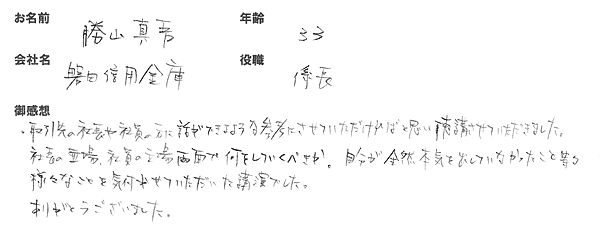 お名前 勝山 真吾 年齢 33
会社名 磐田信用金庫 役職 係長
御感想
・取引先の社長や社員の方に話ができるような参考にさせていただければと思い聴講させていただきました。
社長の立場、社員の立場両面で何をしていくべきか。自分が全然本気を出していなかったこと等
様々なことを気付かせていただいた講演でした。
ありがとうございました。